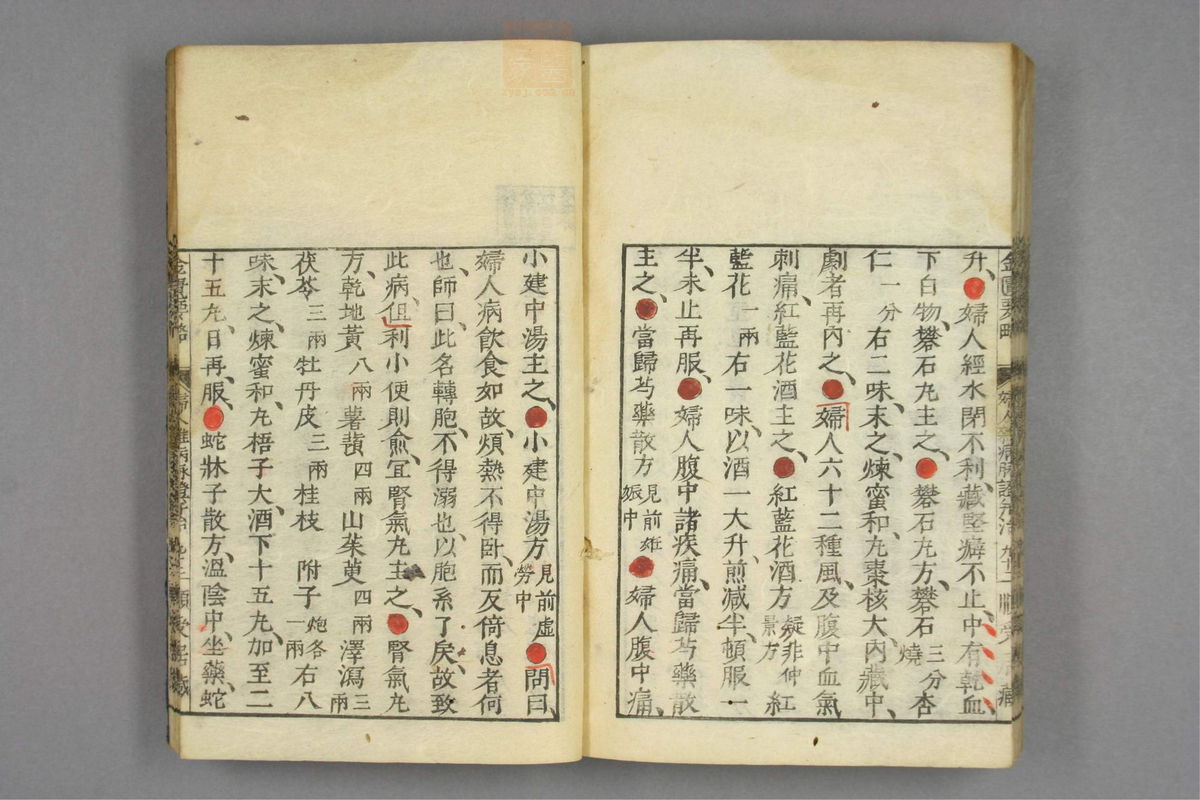 升、婦人經水閉不利、藏堅癖不止、中有乾血、
下白物、礬石丸主之、礬石丸方、礬石三分燒杏
仁一分右二味、末之、煉蜜和丸棗核大、內藏中、
劇者再內之、婦人六十二種風、及腹中血氣
刺痛、紅藍花酒主之、紅藍花酒方疑非仲景方紅
藍花一兩右一味、以酒一大升、煎減半、頓服一
半、未止再服、婦人腹中諸疾痛、當歸芍藥散
主之、當歸芍藥散方見前妊娠中婦人腹中痛、
小建中湯主之、小建中湯方見前虛勞中問曰、
婦人病飲食如故、煩熱不得臥、而反倚息者何
也、師曰、此名轉胞、不得溺也、以胞系了戾、故致
此病、但利小便則愈、宜腎氣丸主之、腎氣丸
方、乾地黃八兩薯蕷四兩山茱萸四兩澤瀉三兩
茯苓三兩牡丹皮三兩桂枝 附子炮各一兩右八
味、末之、煉蜜和丸梧子大、酒下十五丸、加至二
十五丸、日再服、蛇牀子散方、溫陰中、坐藥、蛇